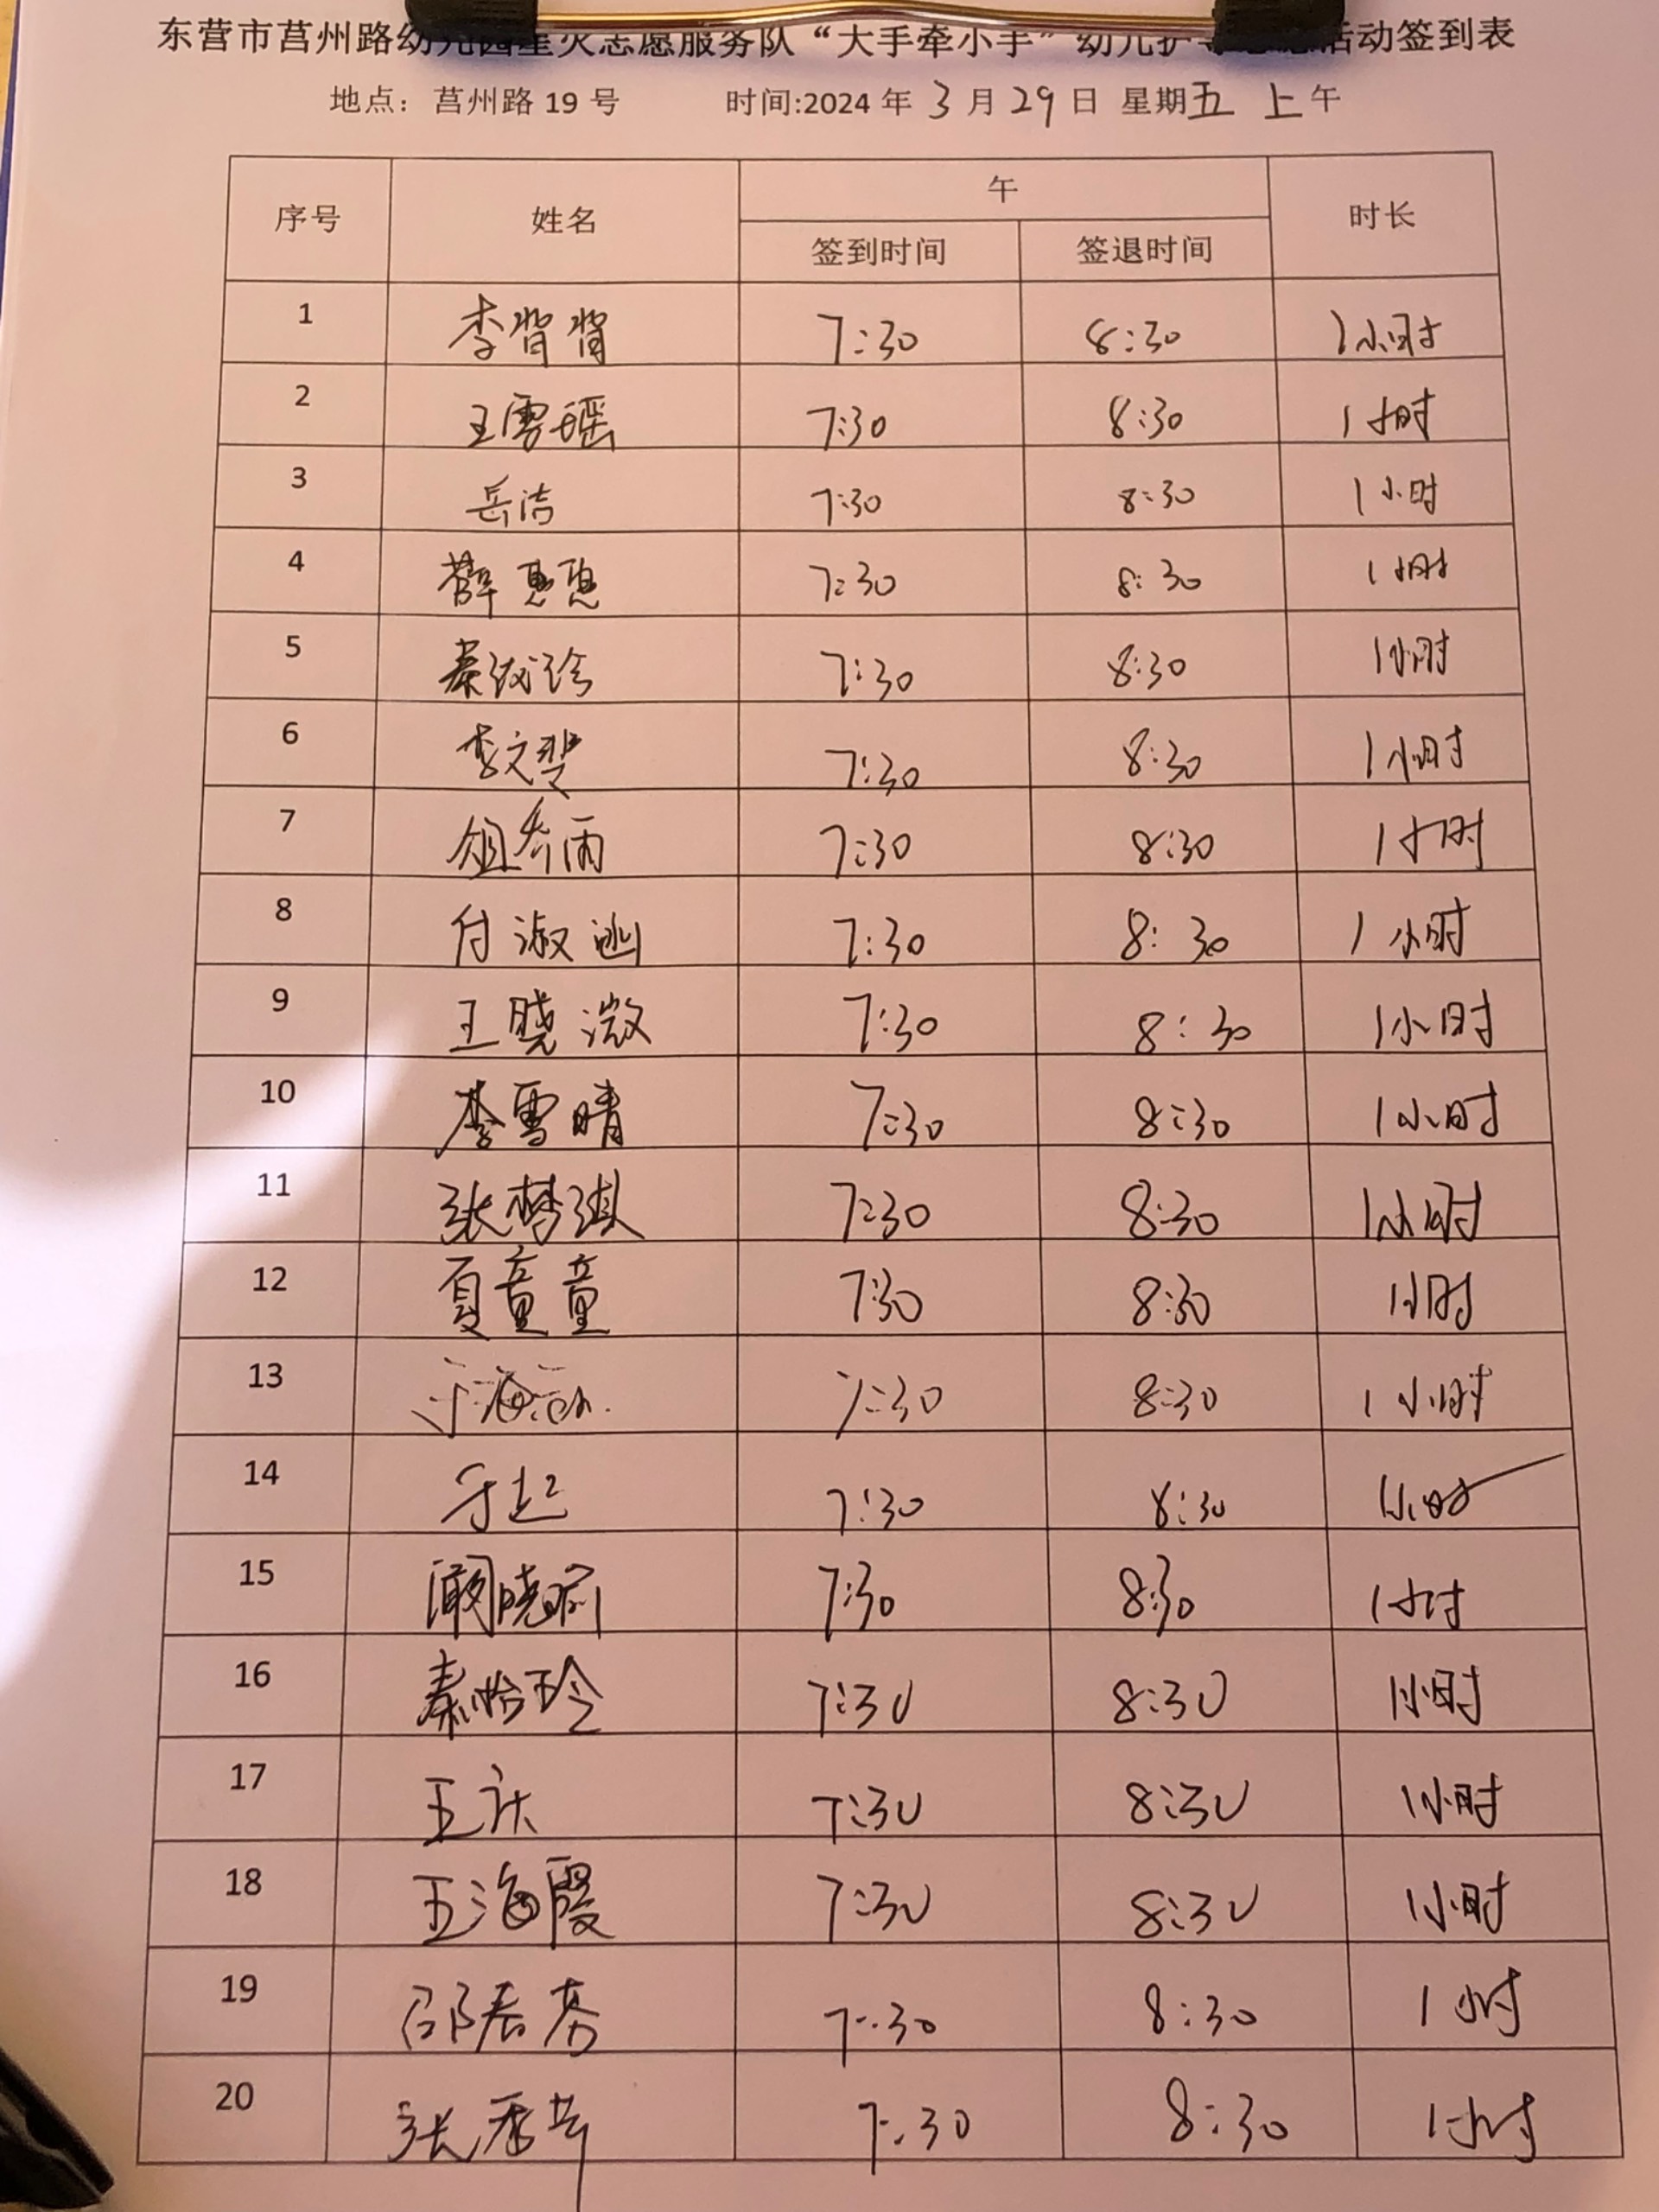 东营市莒州路幼儿园星火志愿服务队“大手牵小手”幼儿护导志愿活动签到表
地点：莒州路 19 号 时间:2024 年 3 月 29 日 星期五 上午
序号 姓名 午 时长
签到时间 签退时间
1 李背背 7:30 8:30 1小时
2 王雪瑶 7:30 8:30 1小时
3 岳洁 7:30 8:30 1小时
4 薛惠惠 7:30 8:30 1小时
5 秦诚珍 7:30 8:30 1小时
6 李文斐 7:30 8:30 1小时
7 俎乔雨 7:30 8:30 1小时
8 付淑逊 7:30 8:30 1小时
9 王晓溦 7:30 8:30 1小时
10 李雪晴 7:30 8:30 1小时
11 张梦琪 7:30 8:30 1小时
12 夏童童 7:30 8:30 1小时
13 7:30 8:30 1小时
14 7:30 8:30 1小时
15 7:30 8:30 1小时
16 秦怡玲 7:30 8:30 1小时
17 王庆 7:30 8:30 1小时
18 王海霞 7:30 8:30 1小时
19 邵春芬 7:30 8:30 1小时
20 张 7:30 8:30 1小时